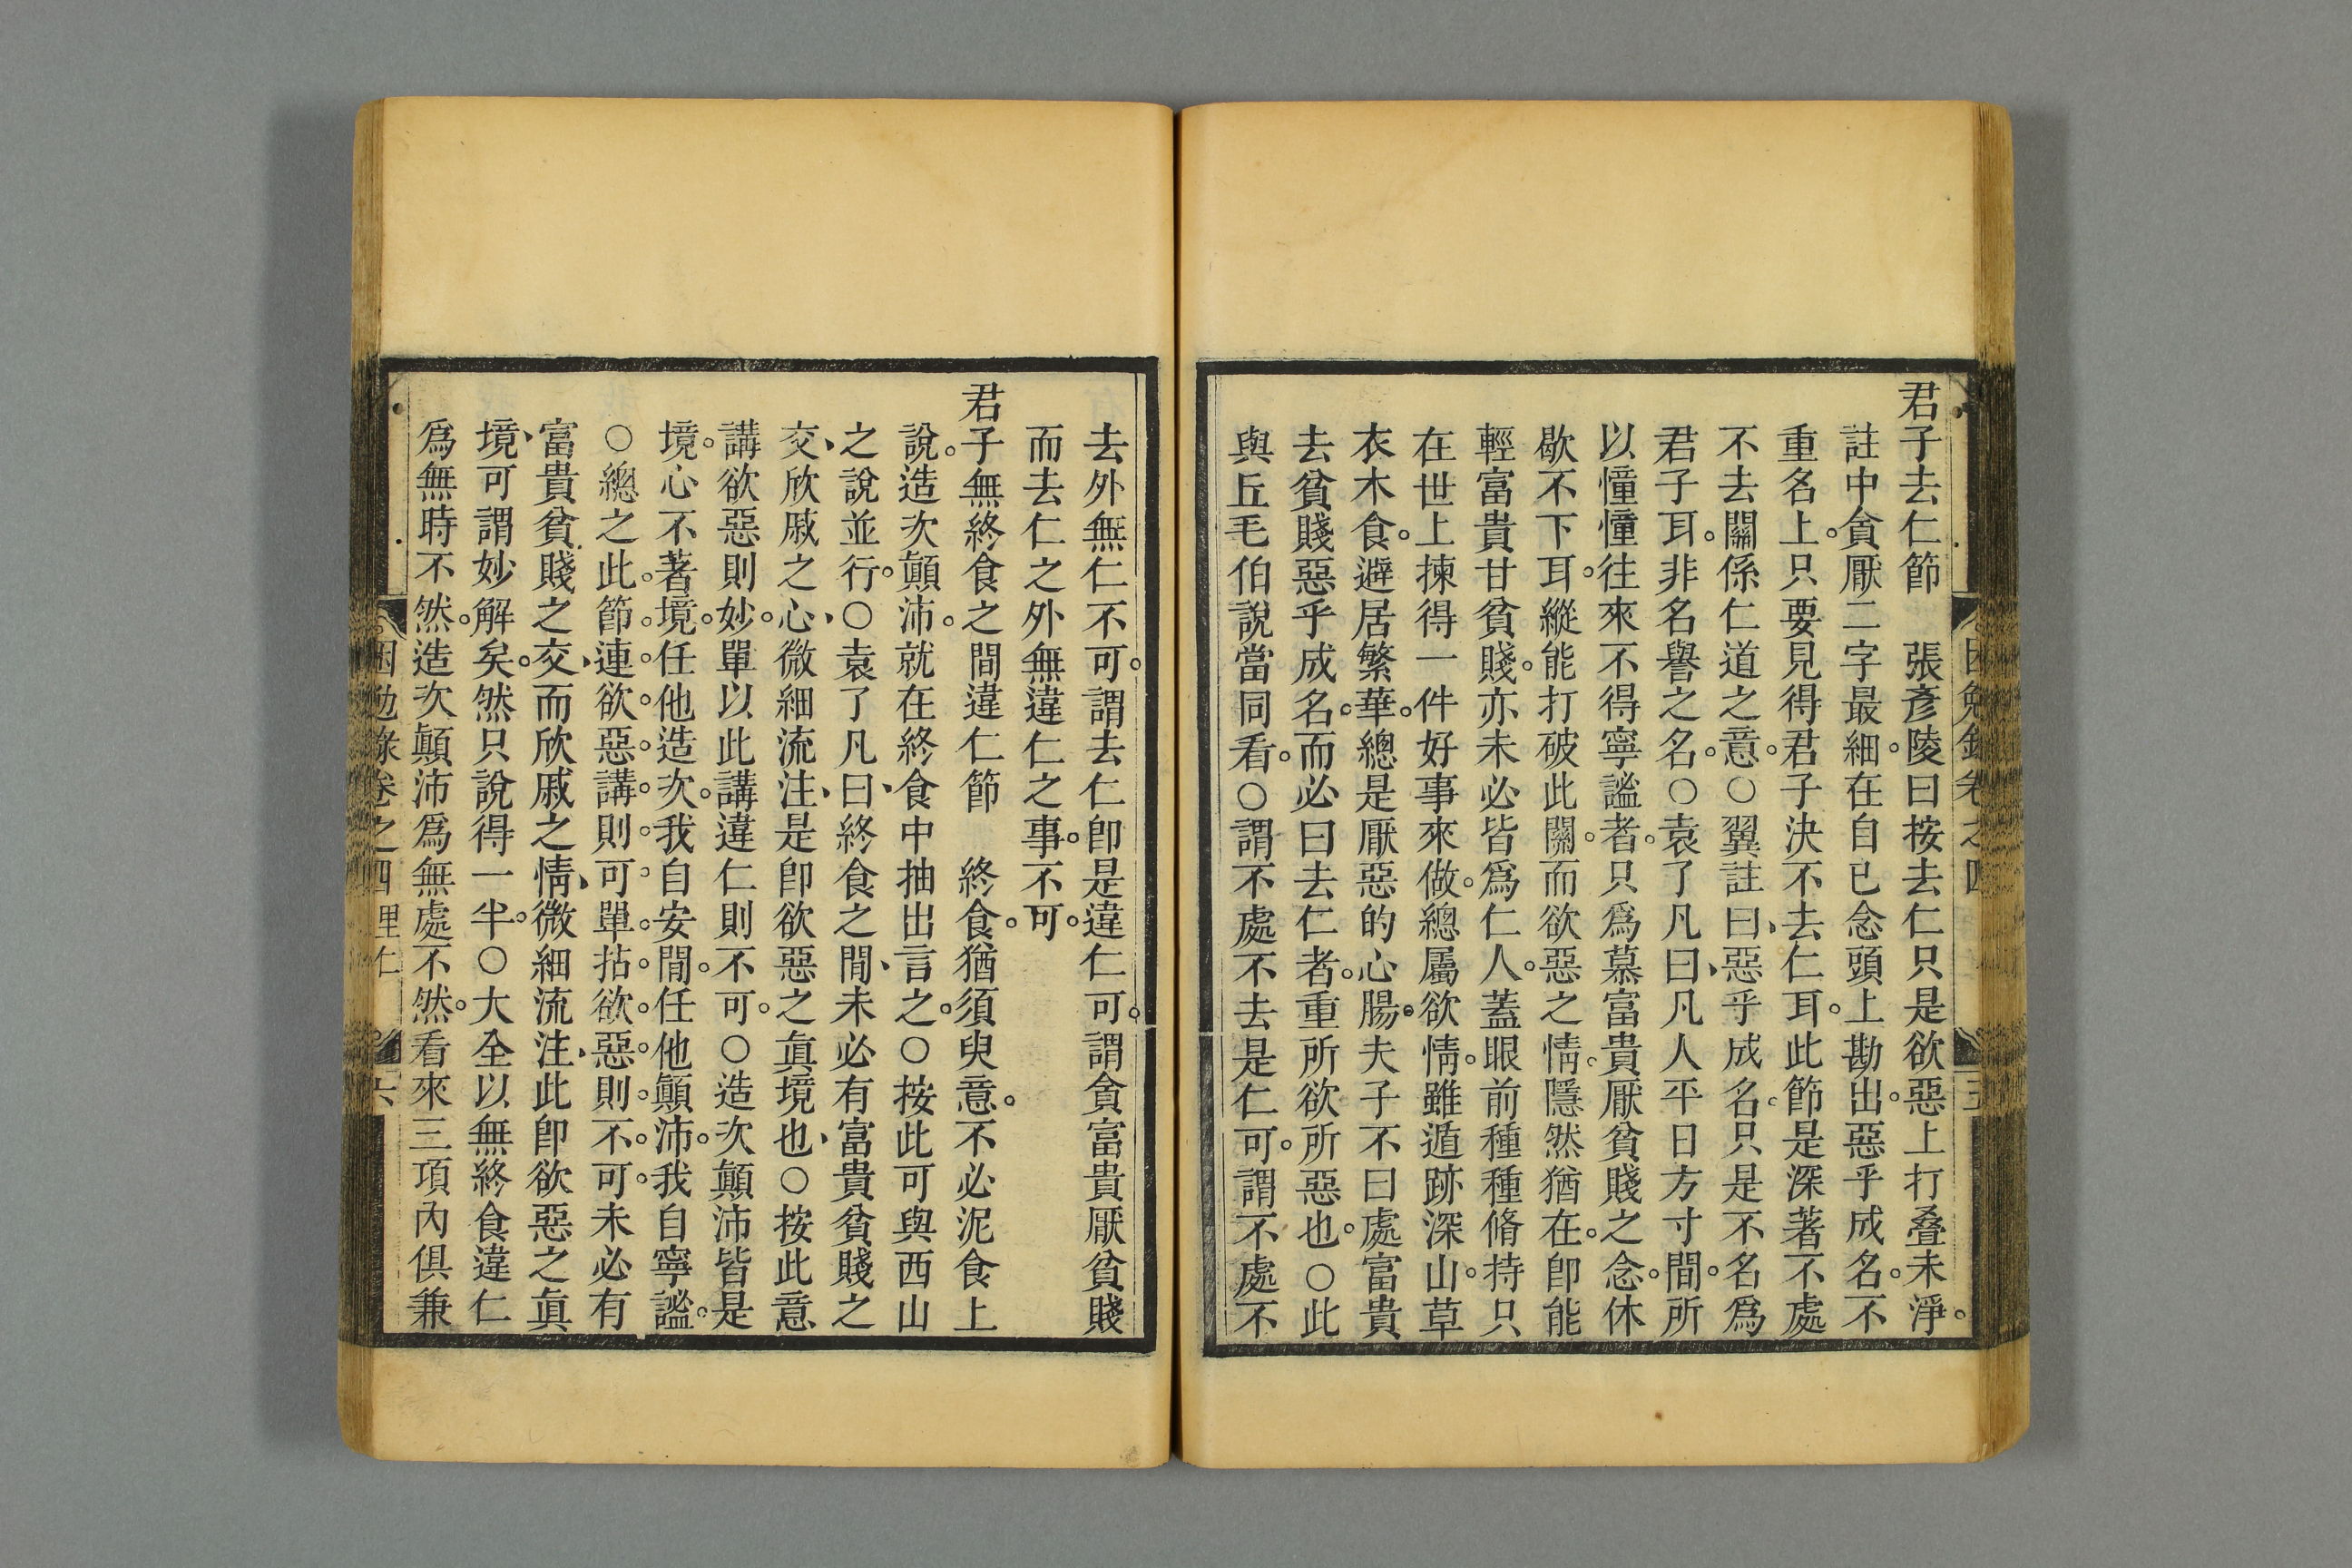 君子去仁節　張彥陵曰按去仁只是欲惡上打叠未淨。
註中貪厭二字最細。在自己念頭上勘出。惡乎成名。不
重名上。只要見得君子決不去仁耳。此節是深著不處
不去關係仁道之意。○翼註曰、惡乎成名。只是不名爲
君子耳。非名譽之名。○袁了凡曰、凡人平日方寸間。所
以憧憧往來不得寧謐者。只爲慕富貴厭貧賤之念。休
歇不下耳。縱能打破此關。而欲惡之情。隱然猶在。卽能
輕富貴甘貧賤。亦未必皆爲仁人。蓋眼前種種脩持只
在世上揀得一件好事來做。總屬欲情。雖遁跡深山。草
衣木食。避居繁華。總是厭惡的心腸。夫子不曰處富貴
去貧賤惡乎成名。而必曰去仁者。重所欲所惡也。○此
與丘毛伯說當同看。○謂不處不去是仁可。謂不處不
去外無仁不可。謂去仁卽是違仁可。謂貪富貴厭貧賤
而去仁之外無違仁之事。不可。
君子無終食之間違仁節　終食。猶須臾意。不必泥食上
說。造次顚沛。就在終食中抽出言之。○按此可與西山
之說並行。○袁了凡曰、終食之間、未必有富貴貧賤之
交、欣戚之心、微細流注、是卽欲惡之眞境也、○按此意
講欲惡則妙。單以此講違仁則不可。○造次顚沛皆是
境。心不著境。任他造次。我自安閒。任他顚沛。我自寧謐。
○總之此。節。連。欲。惡。講。則。可。單。拈。欲。惡。則。不。可。未必有
富貴貧賤之交、而欣戚之情、微細流注、此卽欲惡之眞
境、可謂妙解矣。然只說得一半。○大全以無終食違仁
爲無時不然。造次顚沛爲無處不然。看來三項內俱兼
困勉錄卷之四 里仁 六